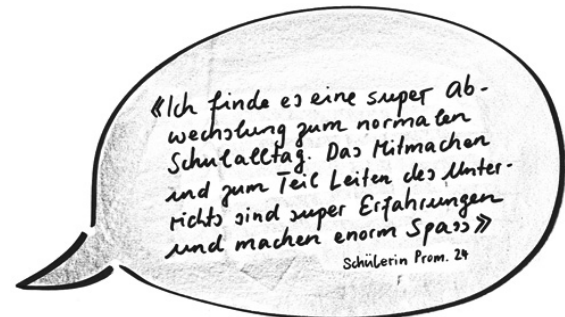 «Ich finde es eine super Ab-
wechslung zum normalen
Schulalltag. Das Mitmachen
und zum Teil Leiten des Unter-
richts sind super Erfahrungen
und machen enorm Spass»
Schülerin Prom. 24